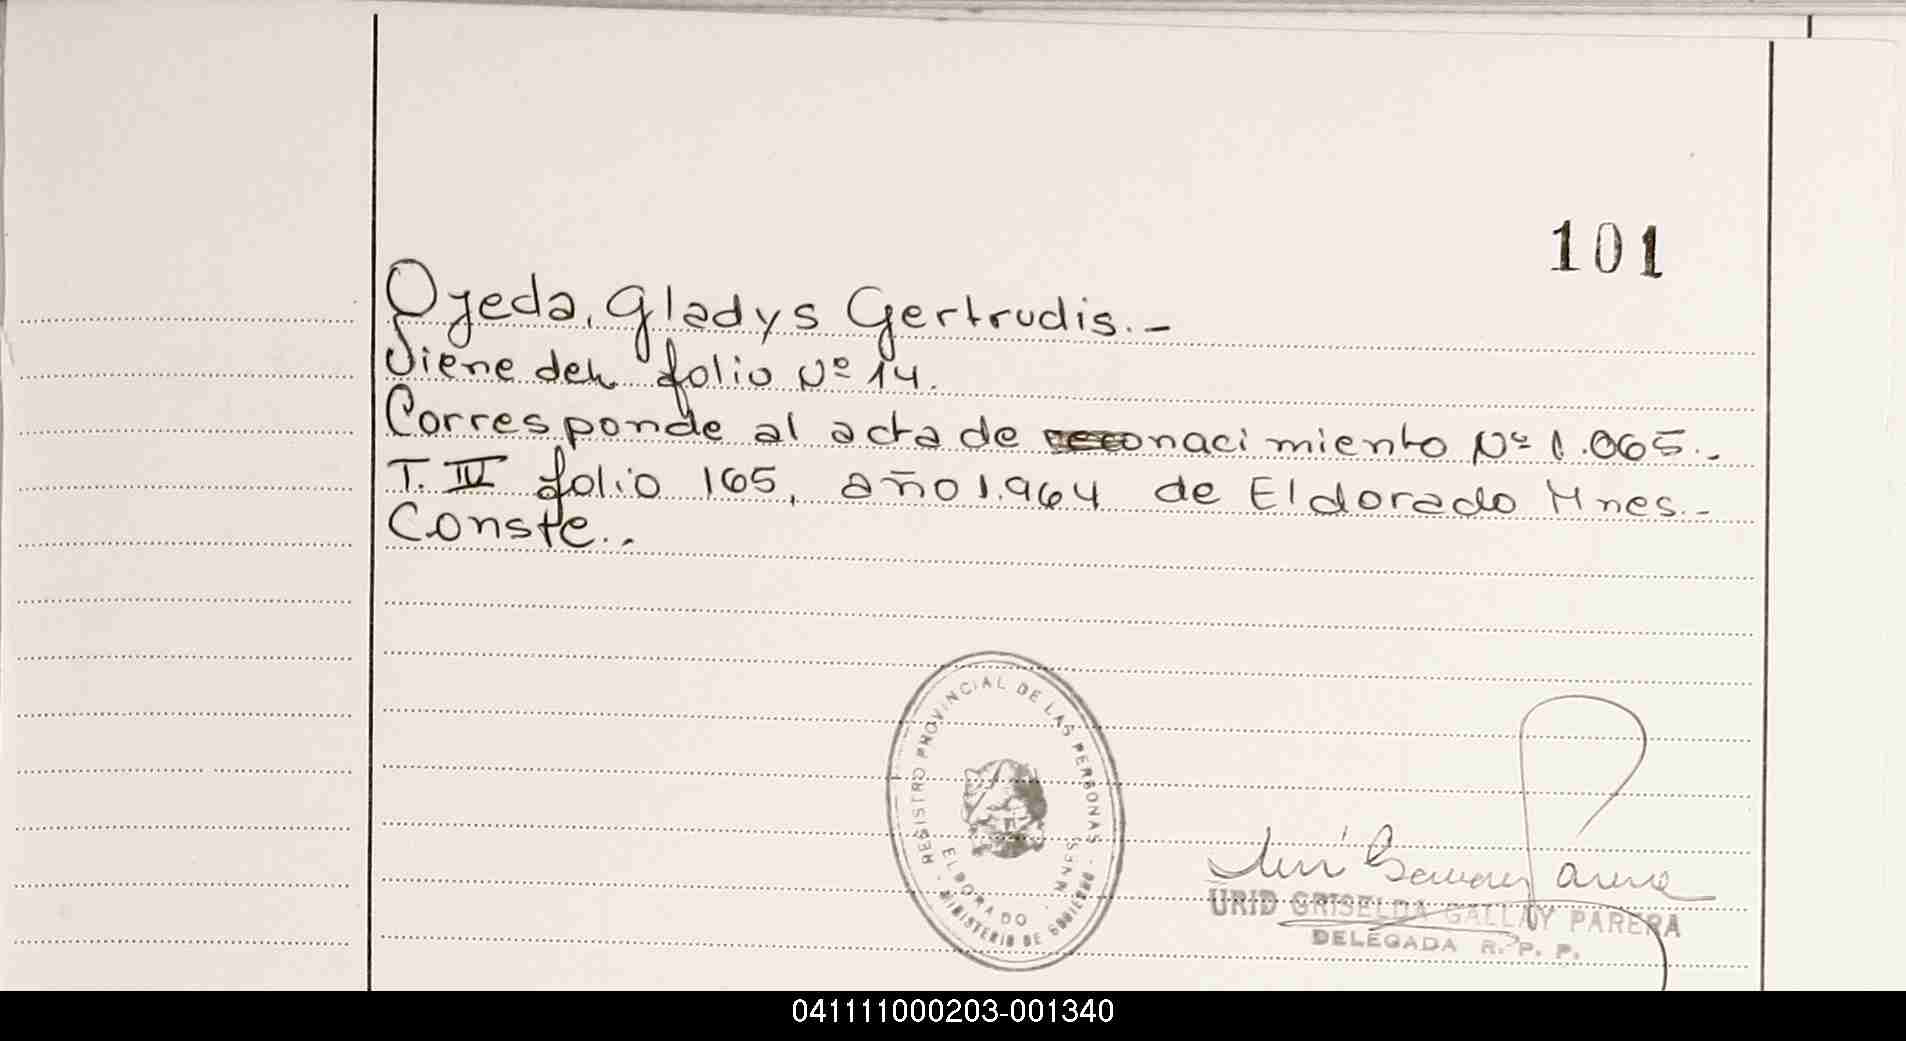 101
Ojeda, Gladys Gertrudis.-
Viene del folio Nº 14.
Corresponde al acta de nacimiento Nº 1.065.-
T. IV folio 165, año 1.964 de Eldorado Mnes.-
Conste.-
REGISTRO PROVINCIAL DE LAS PERSONAS
ELDORADO MNES
MINISTERIO DE GOBIERNO
URID GRISELDA GALLAY PARERA
DELEGADA R. P. P.
041111000203-001340